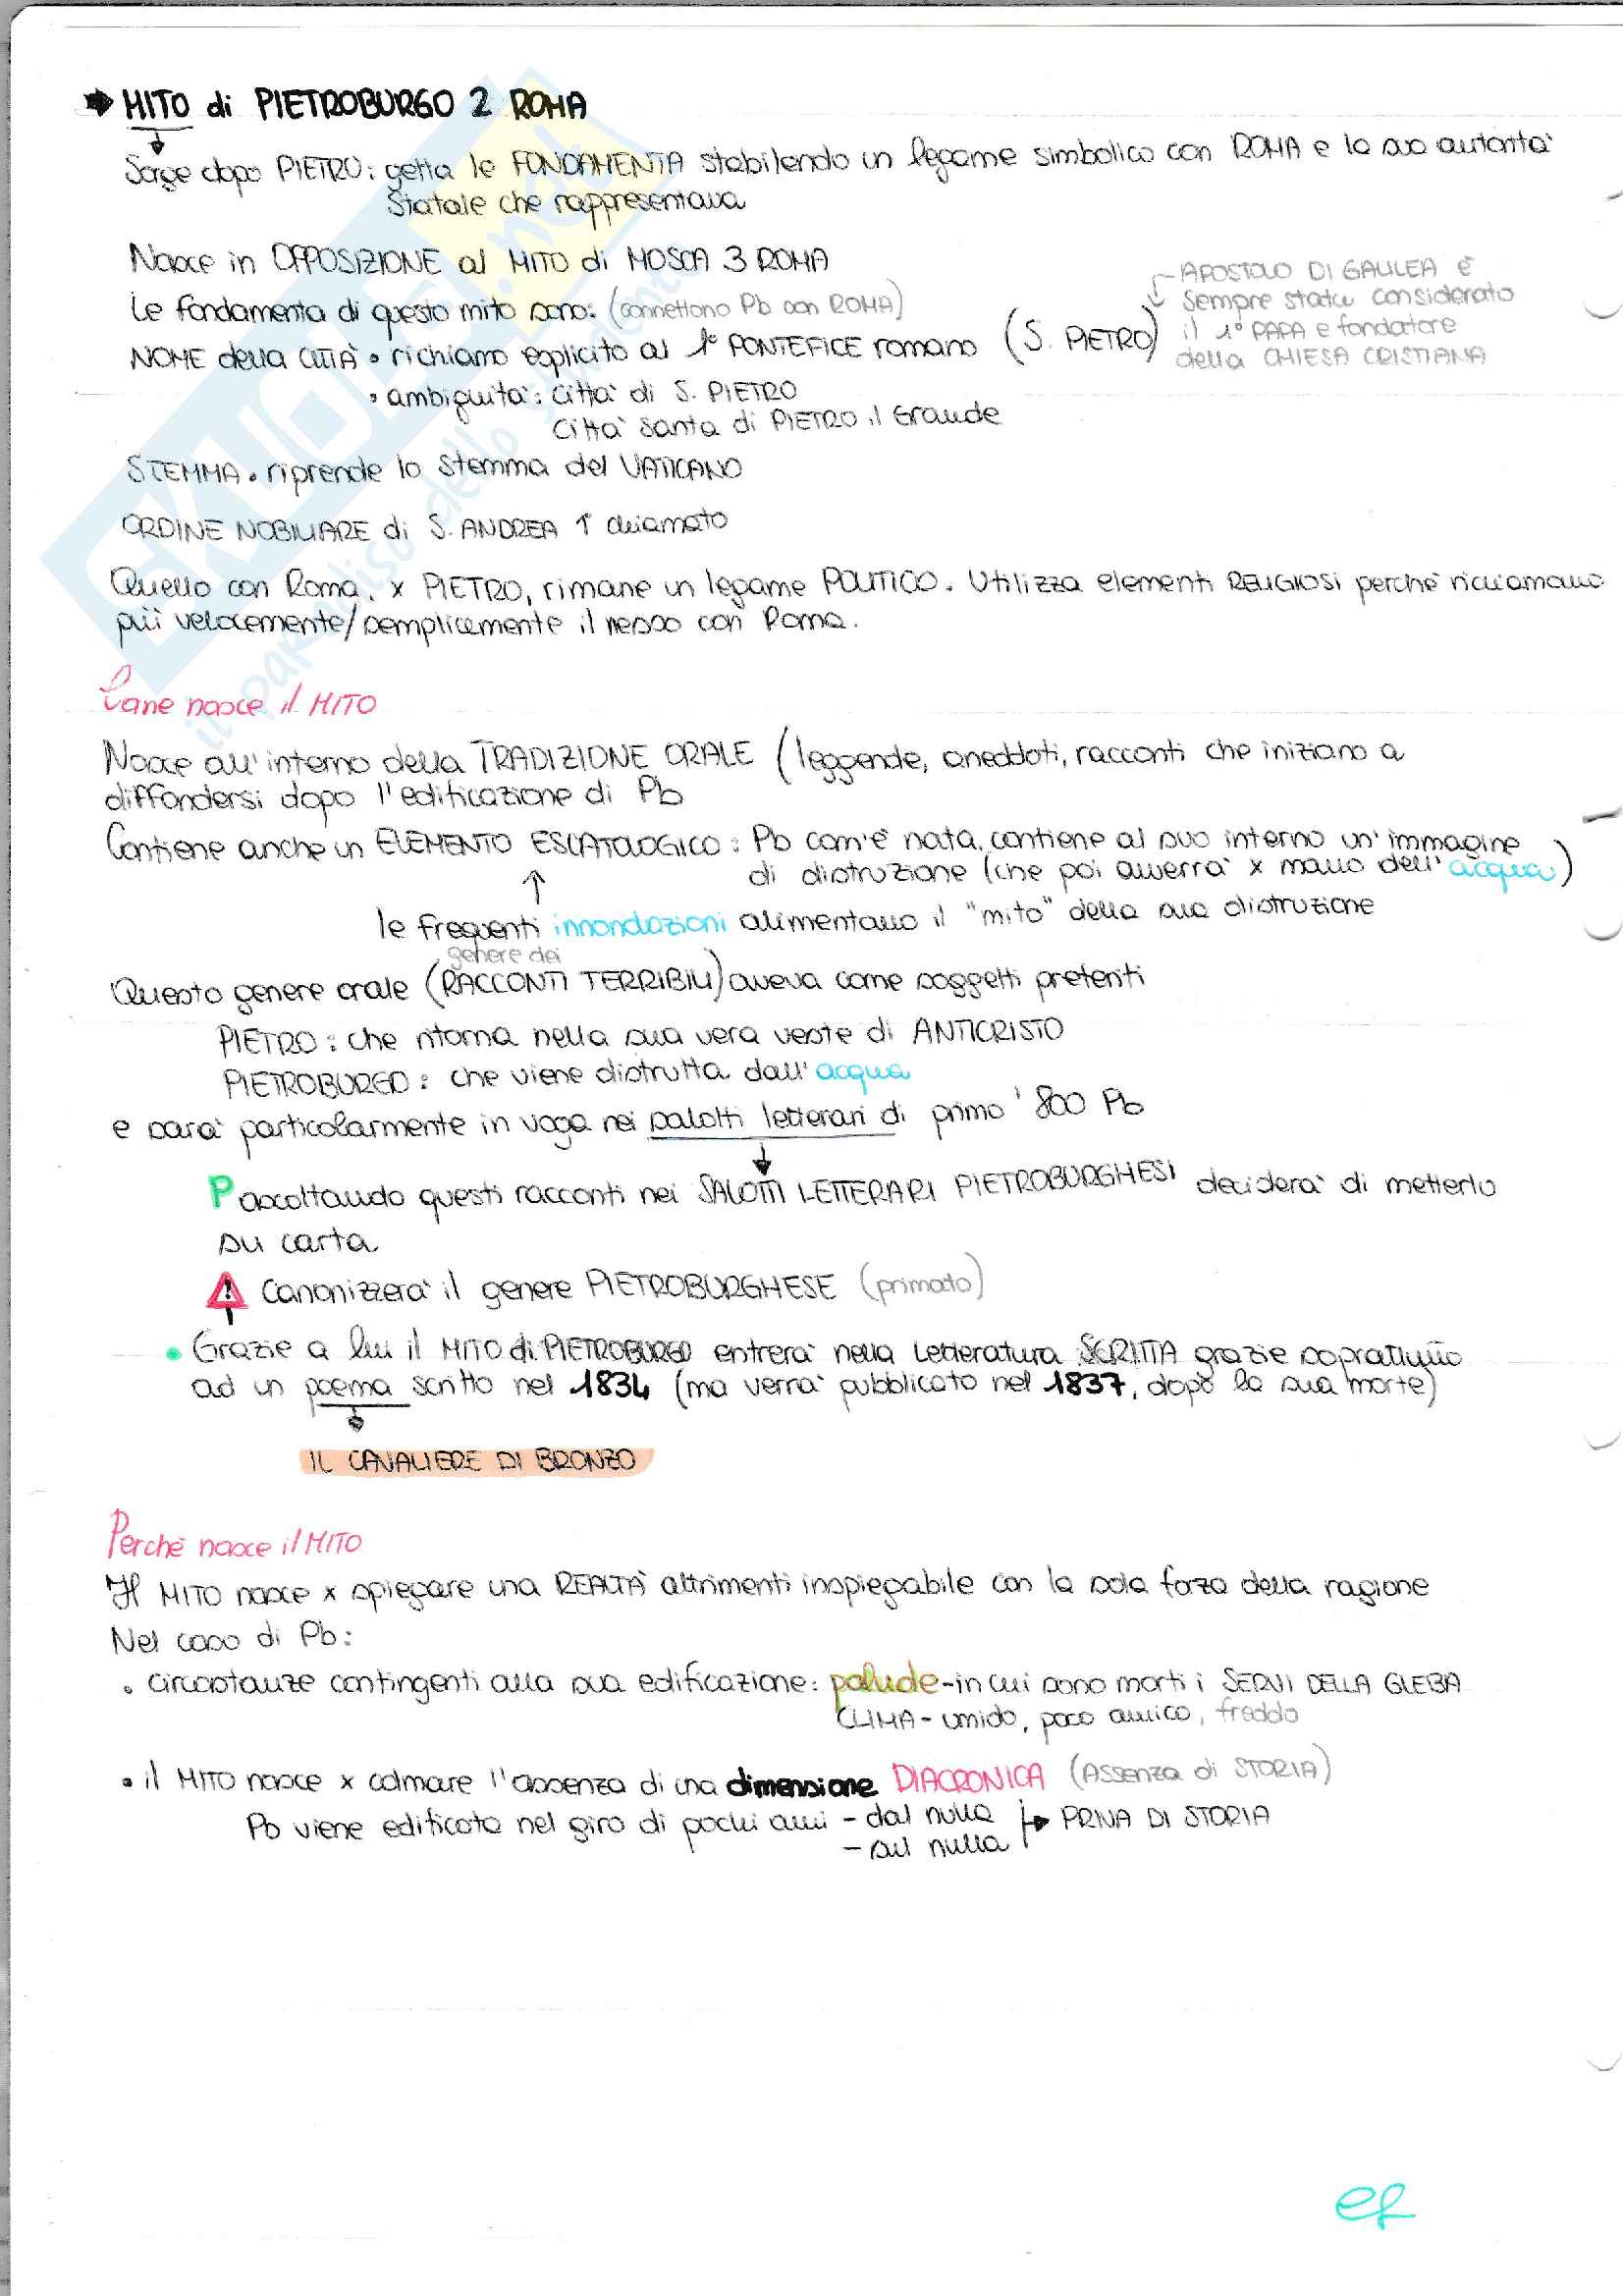 MITO di PIETROBURGO 2 ROMA
Sorge dopo PIETRO: getta le FONDAMENTA stabilendo un legame simbolico con ROMA e la sua autorità
Statale che rappresentava
Nasce in OPPOSIZIONE al MITO di MOSCA 3 ROMA
Le fondamenta di questo mito sono: (connettono Pb con ROMA)
NOME della CITTÀ • richiamo esplicito al 1° PONTEFICE romano (S. PIETRO)
APOSTOLO DI GALILEA è
sempre stato considerato
il 1° PAPA e fondatore
della CHIESA CRISTIANA
• ambiguità: città di S. PIETRO
Città Santa di PIETRO il Grande
STEMMA • riprende lo stemma del VATICANO
ORDINE NOBILIARE di S. ANDREA 1° chiamato
Quello con Roma, x PIETRO, rimane un legame POLITICO. Utilizza elementi RELIGIOSI perchè richiamano
più velocemente/semplicemente il nesso con Roma.
Come nasce il MITO
Nasce all'interno della TRADIZIONE ORALE (leggende, aneddoti, racconti che iniziano a
diffondersi dopo l'edificazione di Pb
Contiene anche un ELEMENTO ESCATOLOGICO: Pb com'è nata, contiene al suo interno un'immagine
di distruzione (che poi avverrà x mano dell'acqua)
↑
le frequenti innondazioni alimentano il "mito" della sua distruzione
genere dei
Questo genere orale (RACCONTI TERRIBILI) aveva come soggetti preferiti
PIETRO: che ritorna nella sua vera veste di ANTICRISTO
PIETROBURGO: che viene distrutta dall'acqua
e sarà particolarmente in voga nei salotti letterari di primo '800 Pb
P ascoltando questi racconti nei SALOTTI LETTERARI PIETROBURGHESI deciderà di metterlo
su carta
! Canonizzerà il genere PIETROBURGHESE (primato)
• Grazie a lui il MITO di PIETROBURGO entrerà nella Letteratura SCRITTA grazie soprattutto
ad un poema scritto nel 1834 (ma verrà pubblicato nel 1837, dopo la sua morte)
IL CAVALIERE DI BRONZO
Perchè nasce il MITO
Il MITO nasce x spiegare una REALTÀ altrimenti inspiegabile con la sola forza della ragione
Nel caso di Pb:
• circostanze contingenti alla sua edificazione: palude - in cui sono morti i SERVI DELLA GLEBA
CLIMA - umido, poco amico, freddo
• il MITO nasce x colmare l'assenza di una dimensione DIACRONICA (Assenza di STORIA)
Pb viene edificata nel giro di pochi anni - dal nulla → PRIVA DI STORIA
- sul nulla
ef
SKUOLA.net
il paradiso dello studente